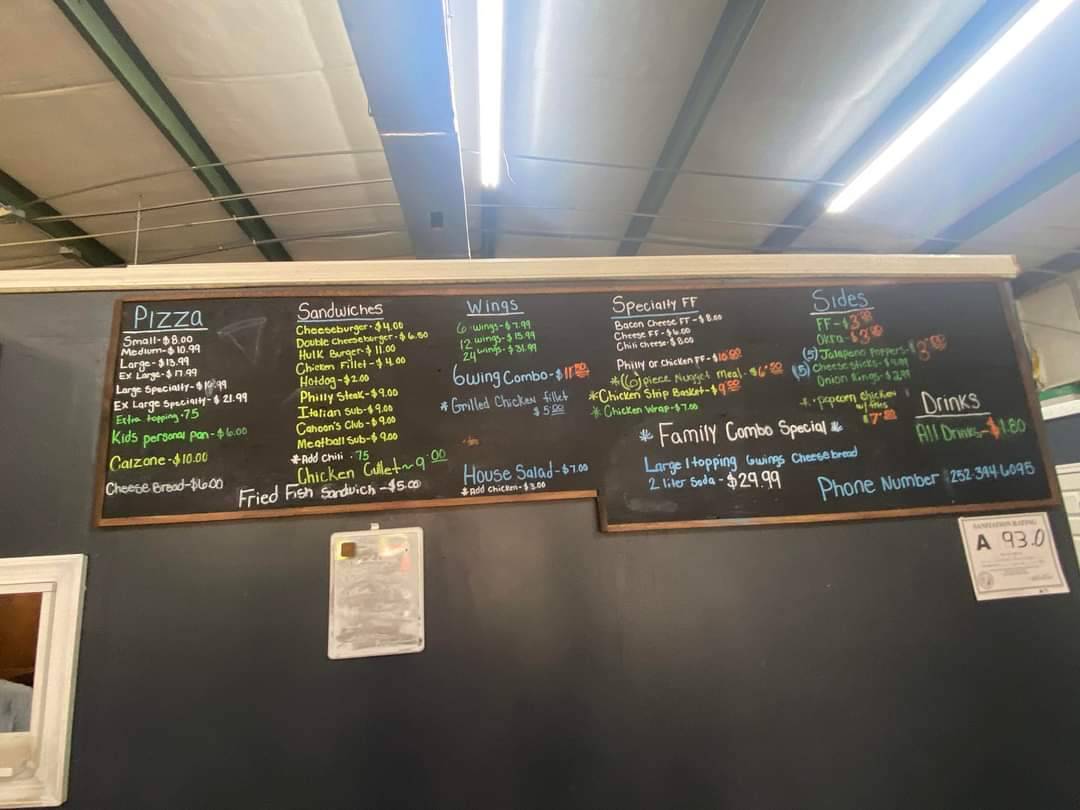 Pizza
Small - $8.00
Medium - $10.99
Large - $13.99
Ex Large - $17.99
Large Specialty -
Ex Large Specialty - $21.99
Extra topping .75
Kids personal pan - $6.00
Calzone - $10.00
Cheese Bread - $6.00
Sandwiches
Cheeseburger - $4.00
Double Cheeseburger - $6.50
Hulk Burger - $11.00
Chicken Fillet - $4.00
Hotdog - $2.00
Philly Steak - $9.00
Italian Sub - $9.00
Cahoon's Club - $9.00
Meatball Sub - $9.00
*Add Chili .75
Chicken Cutlet ~ 9.00
Fried Fish Sandwich - $5.00
Wings
6 wings - $7.99
12 wings - $15.99
24 wings - $31.99
6 wing Combo - $11.50
* Grilled Chicken fillet
$5.00
House Salad - $7.00
*Add Chicken - $3.00
Specialty FF
Bacon Cheese FF - $8.00
Cheese FF - $6.00
Chili Cheese - $8.00
Philly or Chicken FF - $10.00
*(6) piece Nugget Meal -
*Chicken Strip Basket -
* Chicken Wrap - $7.00
* Family Combo Special *
Large 1 topping 6 wings Cheesebread
2 liter Soda - $29.99
Sides
FF -
Okra -
(5) Jalapeno Poppers
(5) Cheesesticks -
Onion Rings -
* popcorn chicken
w/ fries
Drinks
All Drinks - $1.80
Phone Number 252-394-6095
SANITATION RATING
A 93.0